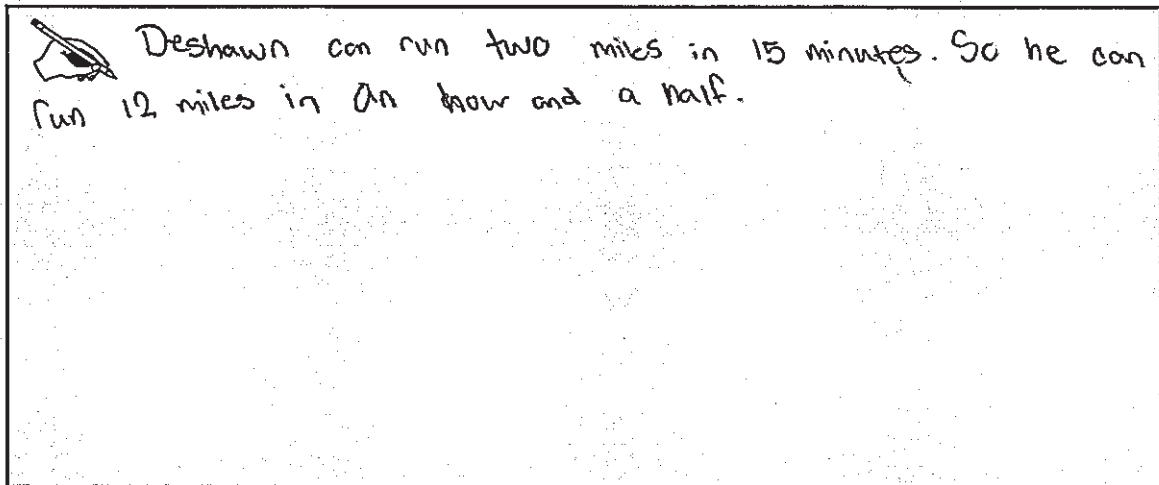 Deshawn can run two miles in 15 minutes. So he can
run 12 miles in an hour and a half.